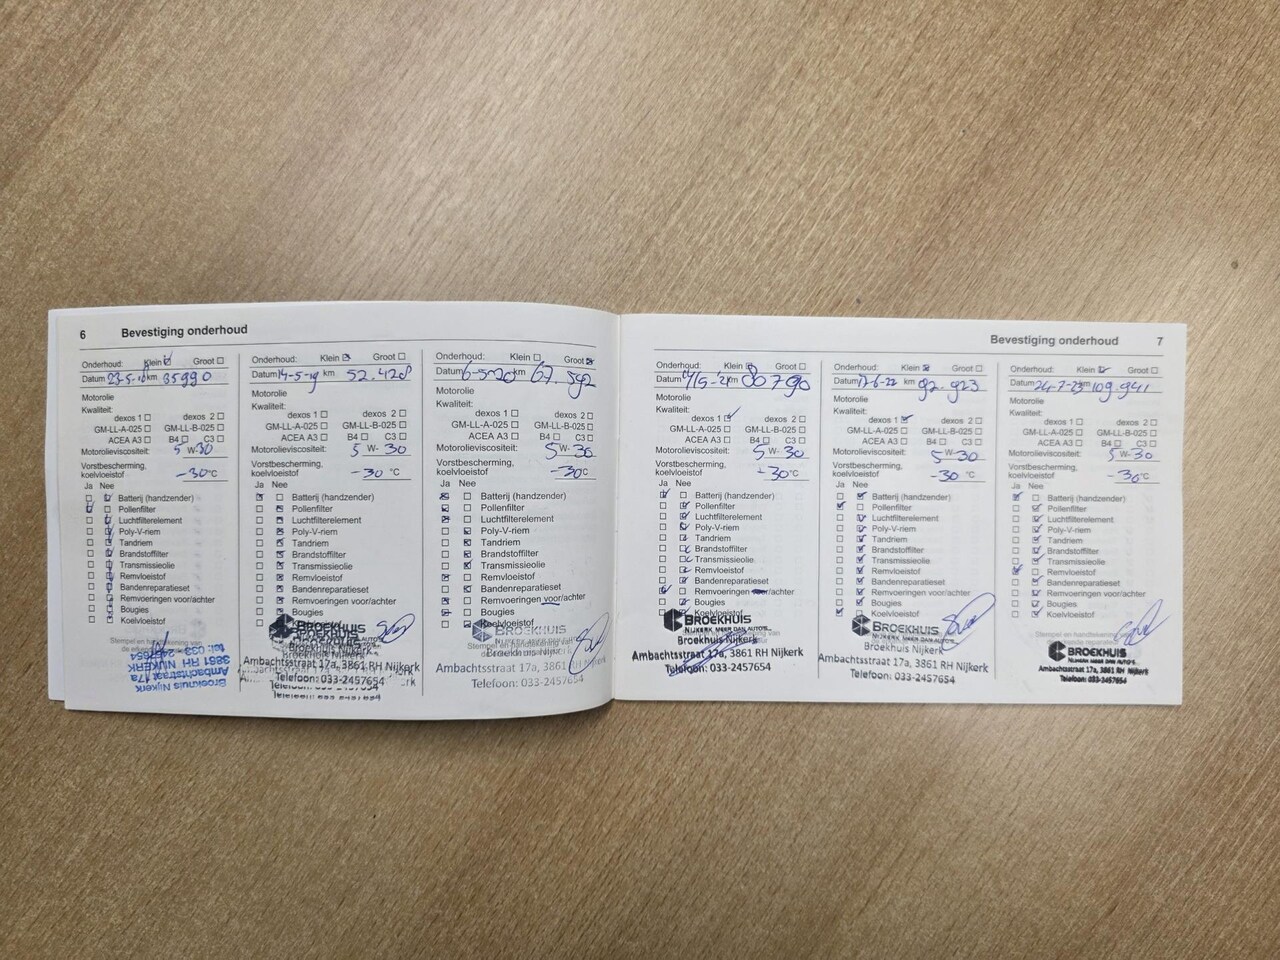 6 Bevestiging onderhoud
Onderhoud: Klein Groot
Datum 23-5-18 km 35990
Motorolie
Kwaliteit:
dexos 1 dexos 2
GM-LL-A-025 GM-LL-B-025
ACEA A3 B4 C3
Motorolieviscositeit: 5 W-30
Vorstbescherming,
koelvloeistof -30°C
Ja Nee
Batterij (handzender)
Pollenfilter
Luchtfilterelement
Poly-V-riem
Tandriem
Brandstoffilter
Transmissieolie
Remvloeistof
Bandenreparatieset
Remvoeringen voor/achter
Bougies
Koelvloeistof
Stempel en handtekening van
Broekhuis Nijkerk
Ambachtsstraat 17a
3861 RH NIJKERK
tel: 033 - 2457654
Onderhoud: Klein Groot
Datum 14-5-19 km 52.428
Motorolie
Kwaliteit:
dexos 1 dexos 2
GM-LL-A-025 GM-LL-B-025
ACEA A3 B4 C3
Motorolieviscositeit: 5 W- 30
Vorstbescherming,
koelvloeistof -30 °C
Ja Nee
Batterij (handzender)
Pollenfilter
Luchtfilterelement
Poly-V-riem
Tandriem
Brandstoffilter
Transmissieolie
Remvloeistof
Bandenreparatieset
Remvoeringen voor/achter
Bougies
BROEKHUIS
Broekhuis Nijkerk
Ambachtsstraat 17a, 3861 RH Nijkerk
Telefoon: 033-2457654
Onderhoud: Klein Groot
Datum 6-5-20 km 67.592
Motorolie
Kwaliteit:
dexos 1 dexos 2
GM-LL-A-025 GM-LL-B-025
ACEA A3 B4 C3
Motorolieviscositeit: 5 W- 30
Vorstbescherming,
koelvloeistof -30°C
Ja Nee
Batterij (handzender)
Pollenfilter
Luchtfilterelement
Poly-V-riem
Tandriem
Brandstoffilter
Transmissieolie
Remvloeistof
Bandenreparatieset
Remvoeringen voor/achter
Bougies
Koelvloeistof
BROEKHUIS
Stempel en handtekening van
Ambachtsstraat 17a, 3861 RH Nijkerk
Telefoon: 033-2457654
Bevestiging onderhoud 7
Onderhoud: Klein Groot
Datum km
Motorolie
Kwaliteit:
dexos 1 dexos 2
GM-LL-A-025 GM-LL-B-025
ACEA A3 B4 C3
Motorolieviscositeit: 5 W- 30
Vorstbescherming,
koelvloeistof -30°C
Ja Nee
Batterij (handzender)
Pollenfilter
Luchtfilterelement
Poly-V-riem
Tandriem
Brandstoffilter
Transmissieolie
Remvloeistof
Bandenreparatieset
Remvoeringen voor/achter
Bougies
Koelvloeistof
BROEKHUIS
NIJKERK MEER DAN AUTO'S
Broekhuis Nijkerk
Ambachtsstraat 17a, 3861 RH Nijkerk
Telefoon: 033-2457654
Onderhoud: Klein Groot
Datum 17-6-22 km 92.923
Motorolie
Kwaliteit:
dexos 1 dexos 2
GM-LL-A-025 GM-LL-B-025
ACEA A3 B4 C3
Motorolieviscositeit: 5 W-30
Vorstbescherming,
koelvloeistof -30 °C
Ja Nee
Batterij (handzender)
Pollenfilter
Luchtfilterelement
Poly-V-riem
Tandriem
Brandstoffilter
Transmissieolie
Remvloeistof
Bandenreparatieset
Remvoeringen voor/achter
Bougies
Koelvloeistof
BROEKHUIS
NIJKERK MEER DAN AUTO'S
Broekhuis Nijkerk
Ambachtsstraat 17a, 3861 RH Nijkerk
Telefoon: 033-2457654
Onderhoud: Klein Groot
Datum 24-7-23 109.941
Motorolie
Kwaliteit:
dexos 1 dexos 2
GM-LL-A-025 GM-LL-B-025
ACEA A3 B4 C3
Motorolieviscositeit: 5 W- 30
Vorstbescherming,
koelvloeistof -30°C
Ja Nee
Batterij (handzender)
Pollenfilter
Luchtfilterelement
Poly-V-riem
Tandriem
Brandstoffilter
Transmissieolie
Remvloeistof
Bandenreparatieset
Remvoeringen voor/achter
Bougies
Koelvloeistof
Stempel en handtekening van
BROEKHUIS
NIJKERK MEER DAN AUTO'S
Ambachtsstraat 17a, 3861 RH Nijkerk
Telefoon: 033-2457654